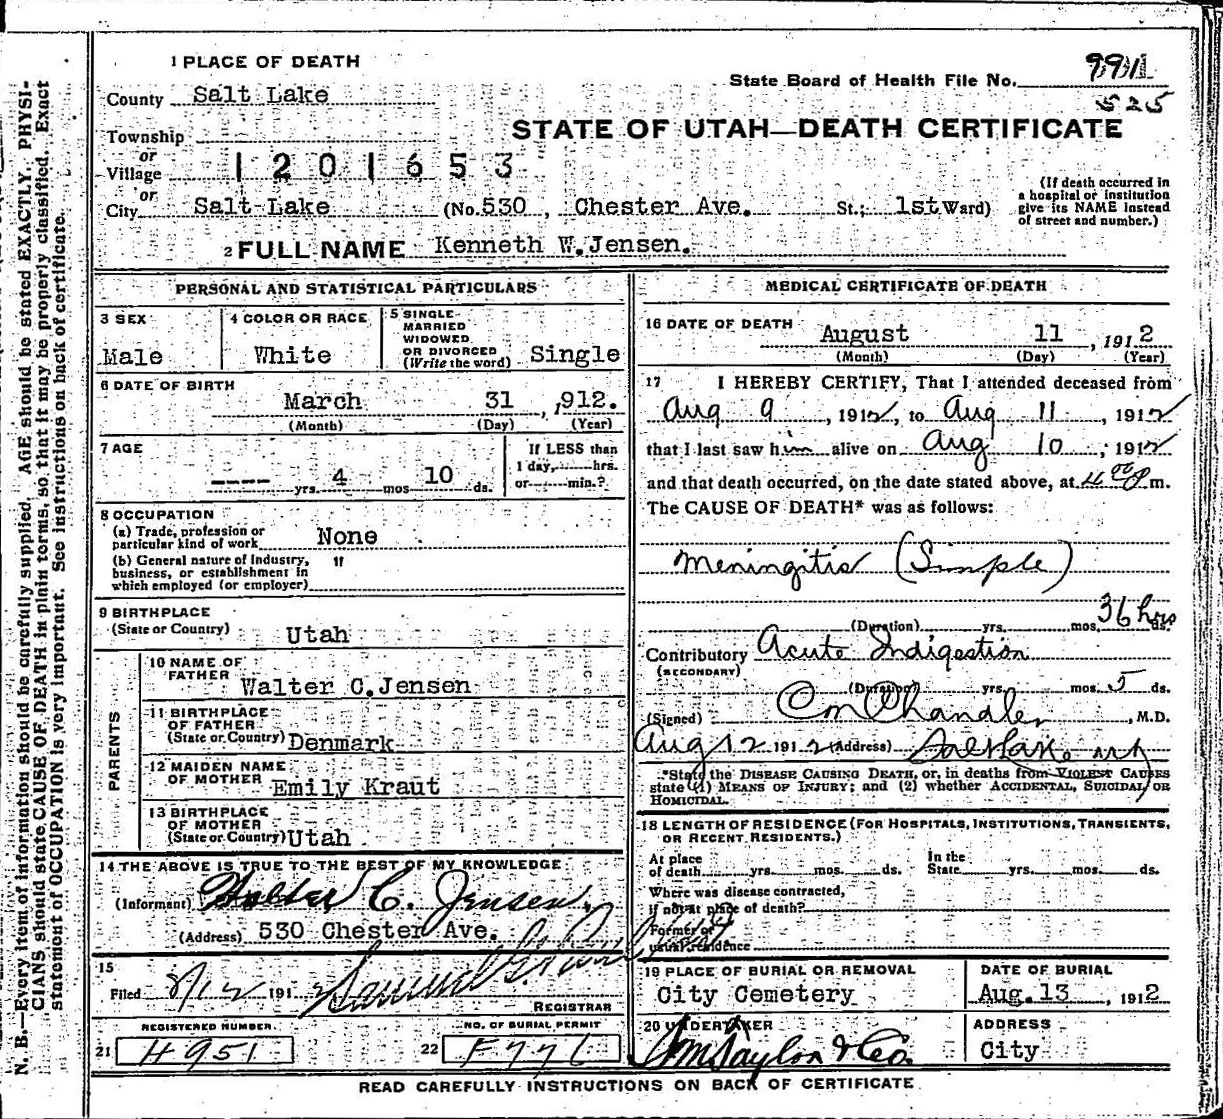 1 PLACE OF DEATH
County Salt Lake
Township
or
Village 1 2 0 1 6 5 3
or
City Salt Lake (No. 530, Chester Ave. St.; 1st Ward)
State Board of Health File No. 991
525
STATE OF UTAH—DEATH CERTIFICATE
(If death occurred in
a hospital or institution
give its NAME instead
of street and number.)
2 FULL NAME Kenneth W.Jensen.
PERSONAL AND STATISTICAL PARTICULARS
3 SEX
Male
4 COLOR OR RACE
White
5 SINGLE
MARRIED
WIDOWED
OR DIVORCED
(Write the word) Single
6 DATE OF BIRTH
March 31, 1912.
(Month) (Day) (Year)
7 AGE
---- yrs. 4 mos 10 ds.
If LESS than
1 day, hrs.
or min.?
8 OCCUPATION
(a) Trade, profession or
particular kind of work None
(b) General nature of Industry,
business, or establishment in
which employed (or employer) "
9 BIRTHPLACE
(State or Country) Utah
PARENTS
10 NAME OF
FATHER
Walter C.Jensen
11 BIRTHPLACE
OF FATHER
(State or Country) Denmark
12 MAIDEN NAME
OF MOTHER
Emily Kraut
13 BIRTHPLACE
OF MOTHER
(State or Country) Utah
14 THE ABOVE IS TRUE TO THE BEST OF MY KNOWLEDGE
(Informant) Walter C. Jensen.
(Address) 530 Chester Ave.
15
Filed 8/12 191 2 Samuel G.
REGISTRAR
REGISTERED NUMBER
21 4951
NO. OF BURIAL PERMIT
22 F776
MEDICAL CERTIFICATE OF DEATH
16 DATE OF DEATH August 11, 1912
(Month) (Day) (Year)
17 I HEREBY CERTIFY, That I attended deceased from
Aug 9, 1912, to Aug 11, 1912
that I last saw him alive on Aug 10, 1912
and that death occurred, on the date stated above, at 4 00 P m.
The CAUSE OF DEATH* was as follows:
Meningitis (Simple)
(Duration) yrs. mos. 36 hrs ds.
Contributory Acute Indigestion
(SECONDARY)
(Duration) yrs. mos. 5 ds.
(Signed) Chandler, M.D.
Aug 12 1912 (Address) Salt Lake
*State the DISEASE CAUSING DEATH, or, in deaths from VIOLENT CAUSES
state (1) MEANS OF INJURY; and (2) whether ACCIDENTAL, SUICIDAL, OR
HOMICIDAL.
18 LENGTH OF RESIDENCE (FOR HOSPITALS, INSTITUTIONS, TRANSIENTS,
OR RECENT RESIDENTS.)
At place
of death yrs. mos. ds.
In the
State yrs. mos. ds.
Where was disease contracted,
if not at place of death?
Former or
usual residence
19 PLACE OF BURIAL OR REMOVAL
City Cemetery
DATE OF BURIAL
Aug. 13, 1912
20 UNDERTAKER
Wm Taylor & Co.
ADDRESS
City
READ CAREFULLY INSTRUCTIONS ON BACK OF CERTIFICATE
N. B.—Every item of information should be carefully supplied. AGE should be stated EXACTLY. PHYSI-
CIANS should state CAUSE OF DEATH in plain terms, so that it may be properly classified. Exact
statement of OCCUPATION is very important. See instructions on back of certificate.